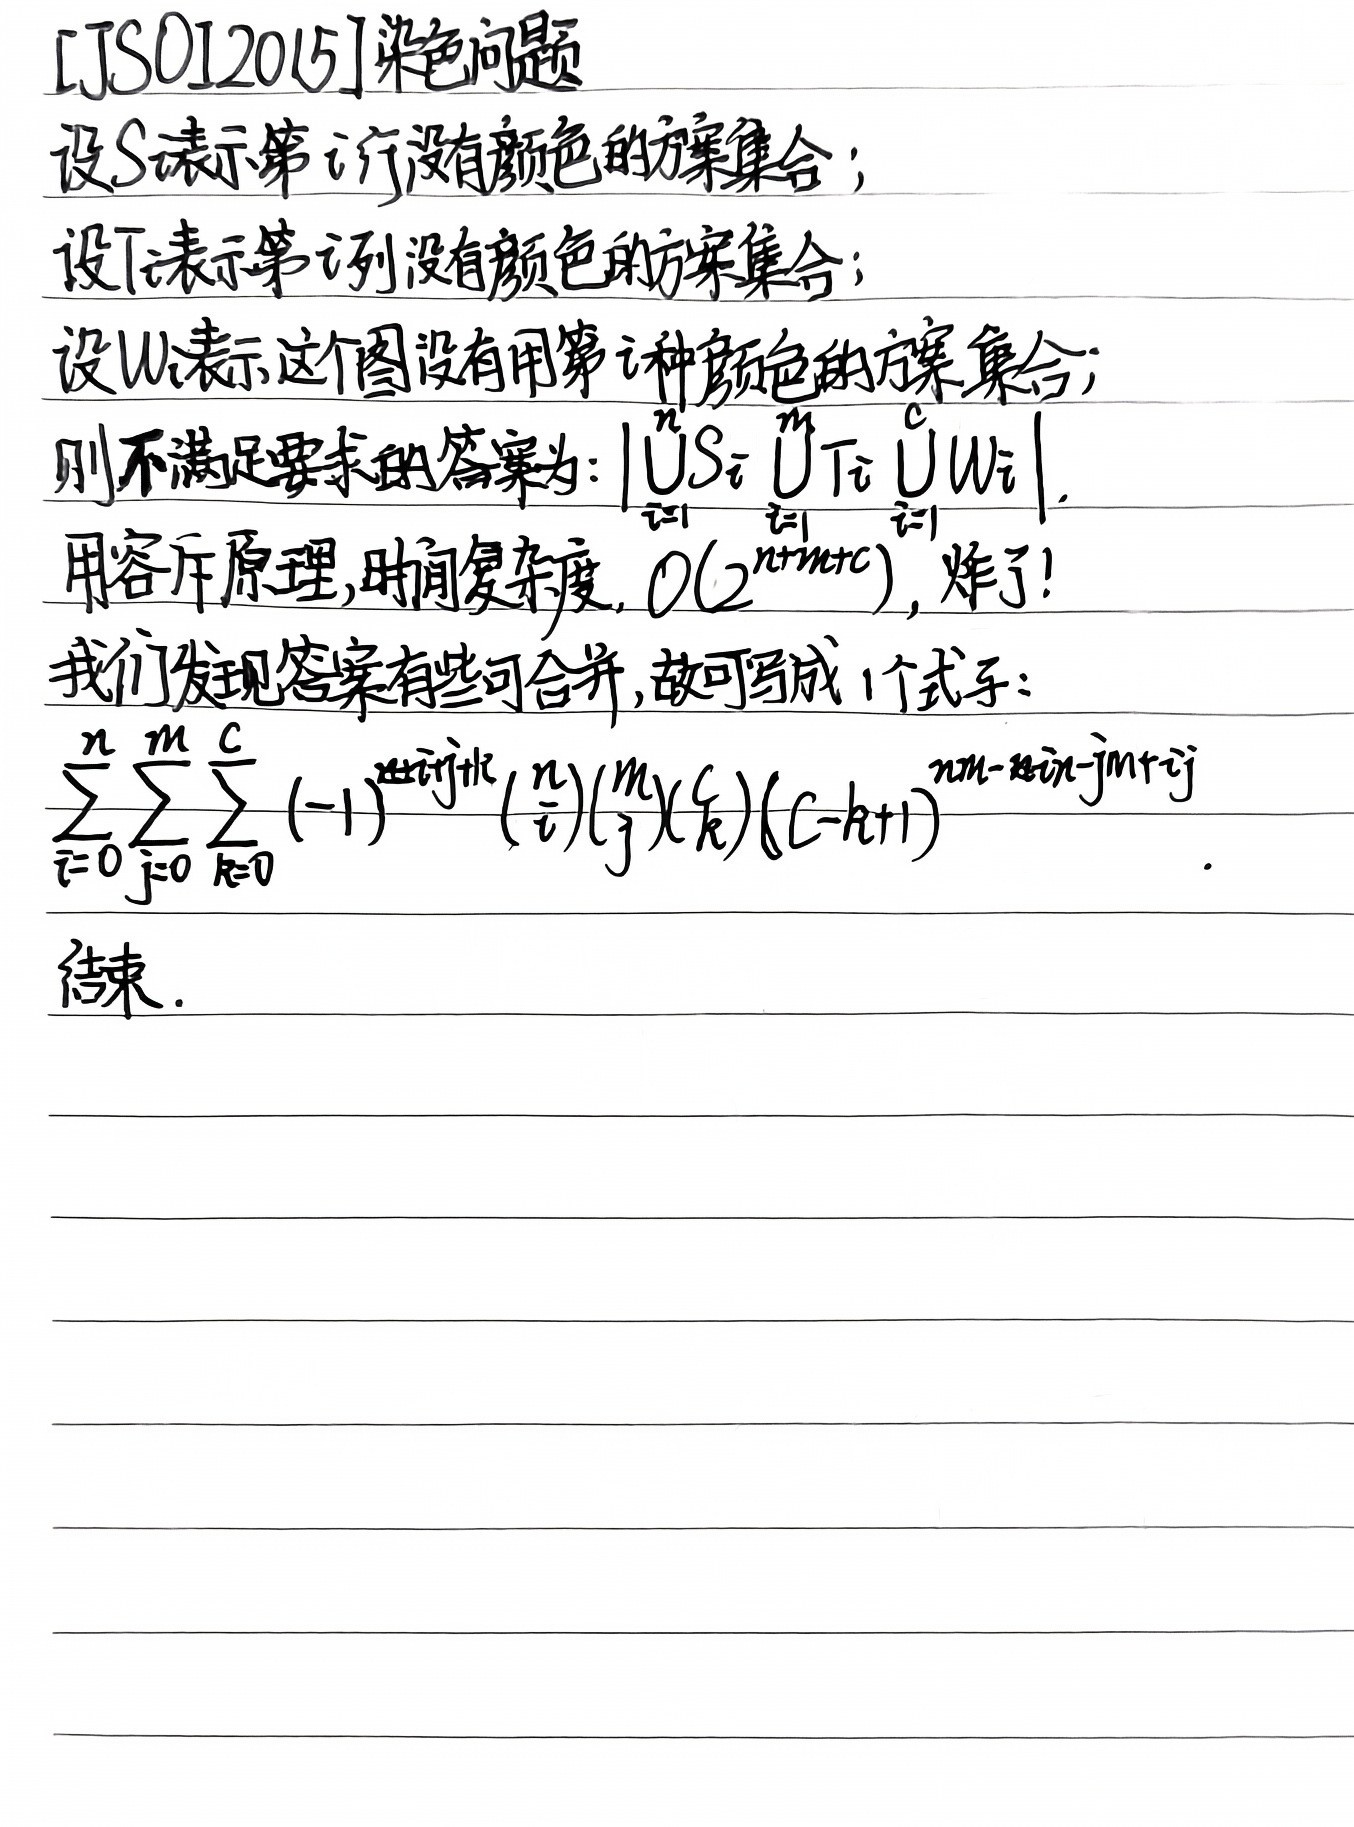 [JSOI2015]染色问题
设Si表示第i行没有颜色的方案集合；
设Ti表示第i列没有颜色的方案集合；
设Wi表示这个图没有用第i种颜色的方案集合；
则不满足要求的答案为：|⋃_{i=1}^{n} Si ⋃_{i=1}^{m} Ti ⋃_{i=1}^{c} Wi|.
用容斥原理,时间复杂度. O(2^{n+m+c}), 炸了!
我们发现答案有些可合并,故可写成1个式子:
∑_{i=0}^{n} ∑_{j=0}^{m} ∑_{k=0}^{c} (-1)^{i+j+k} (n i)(m j)(c k)(c-k+1)^{nm-in-jm+ij}.
结束.